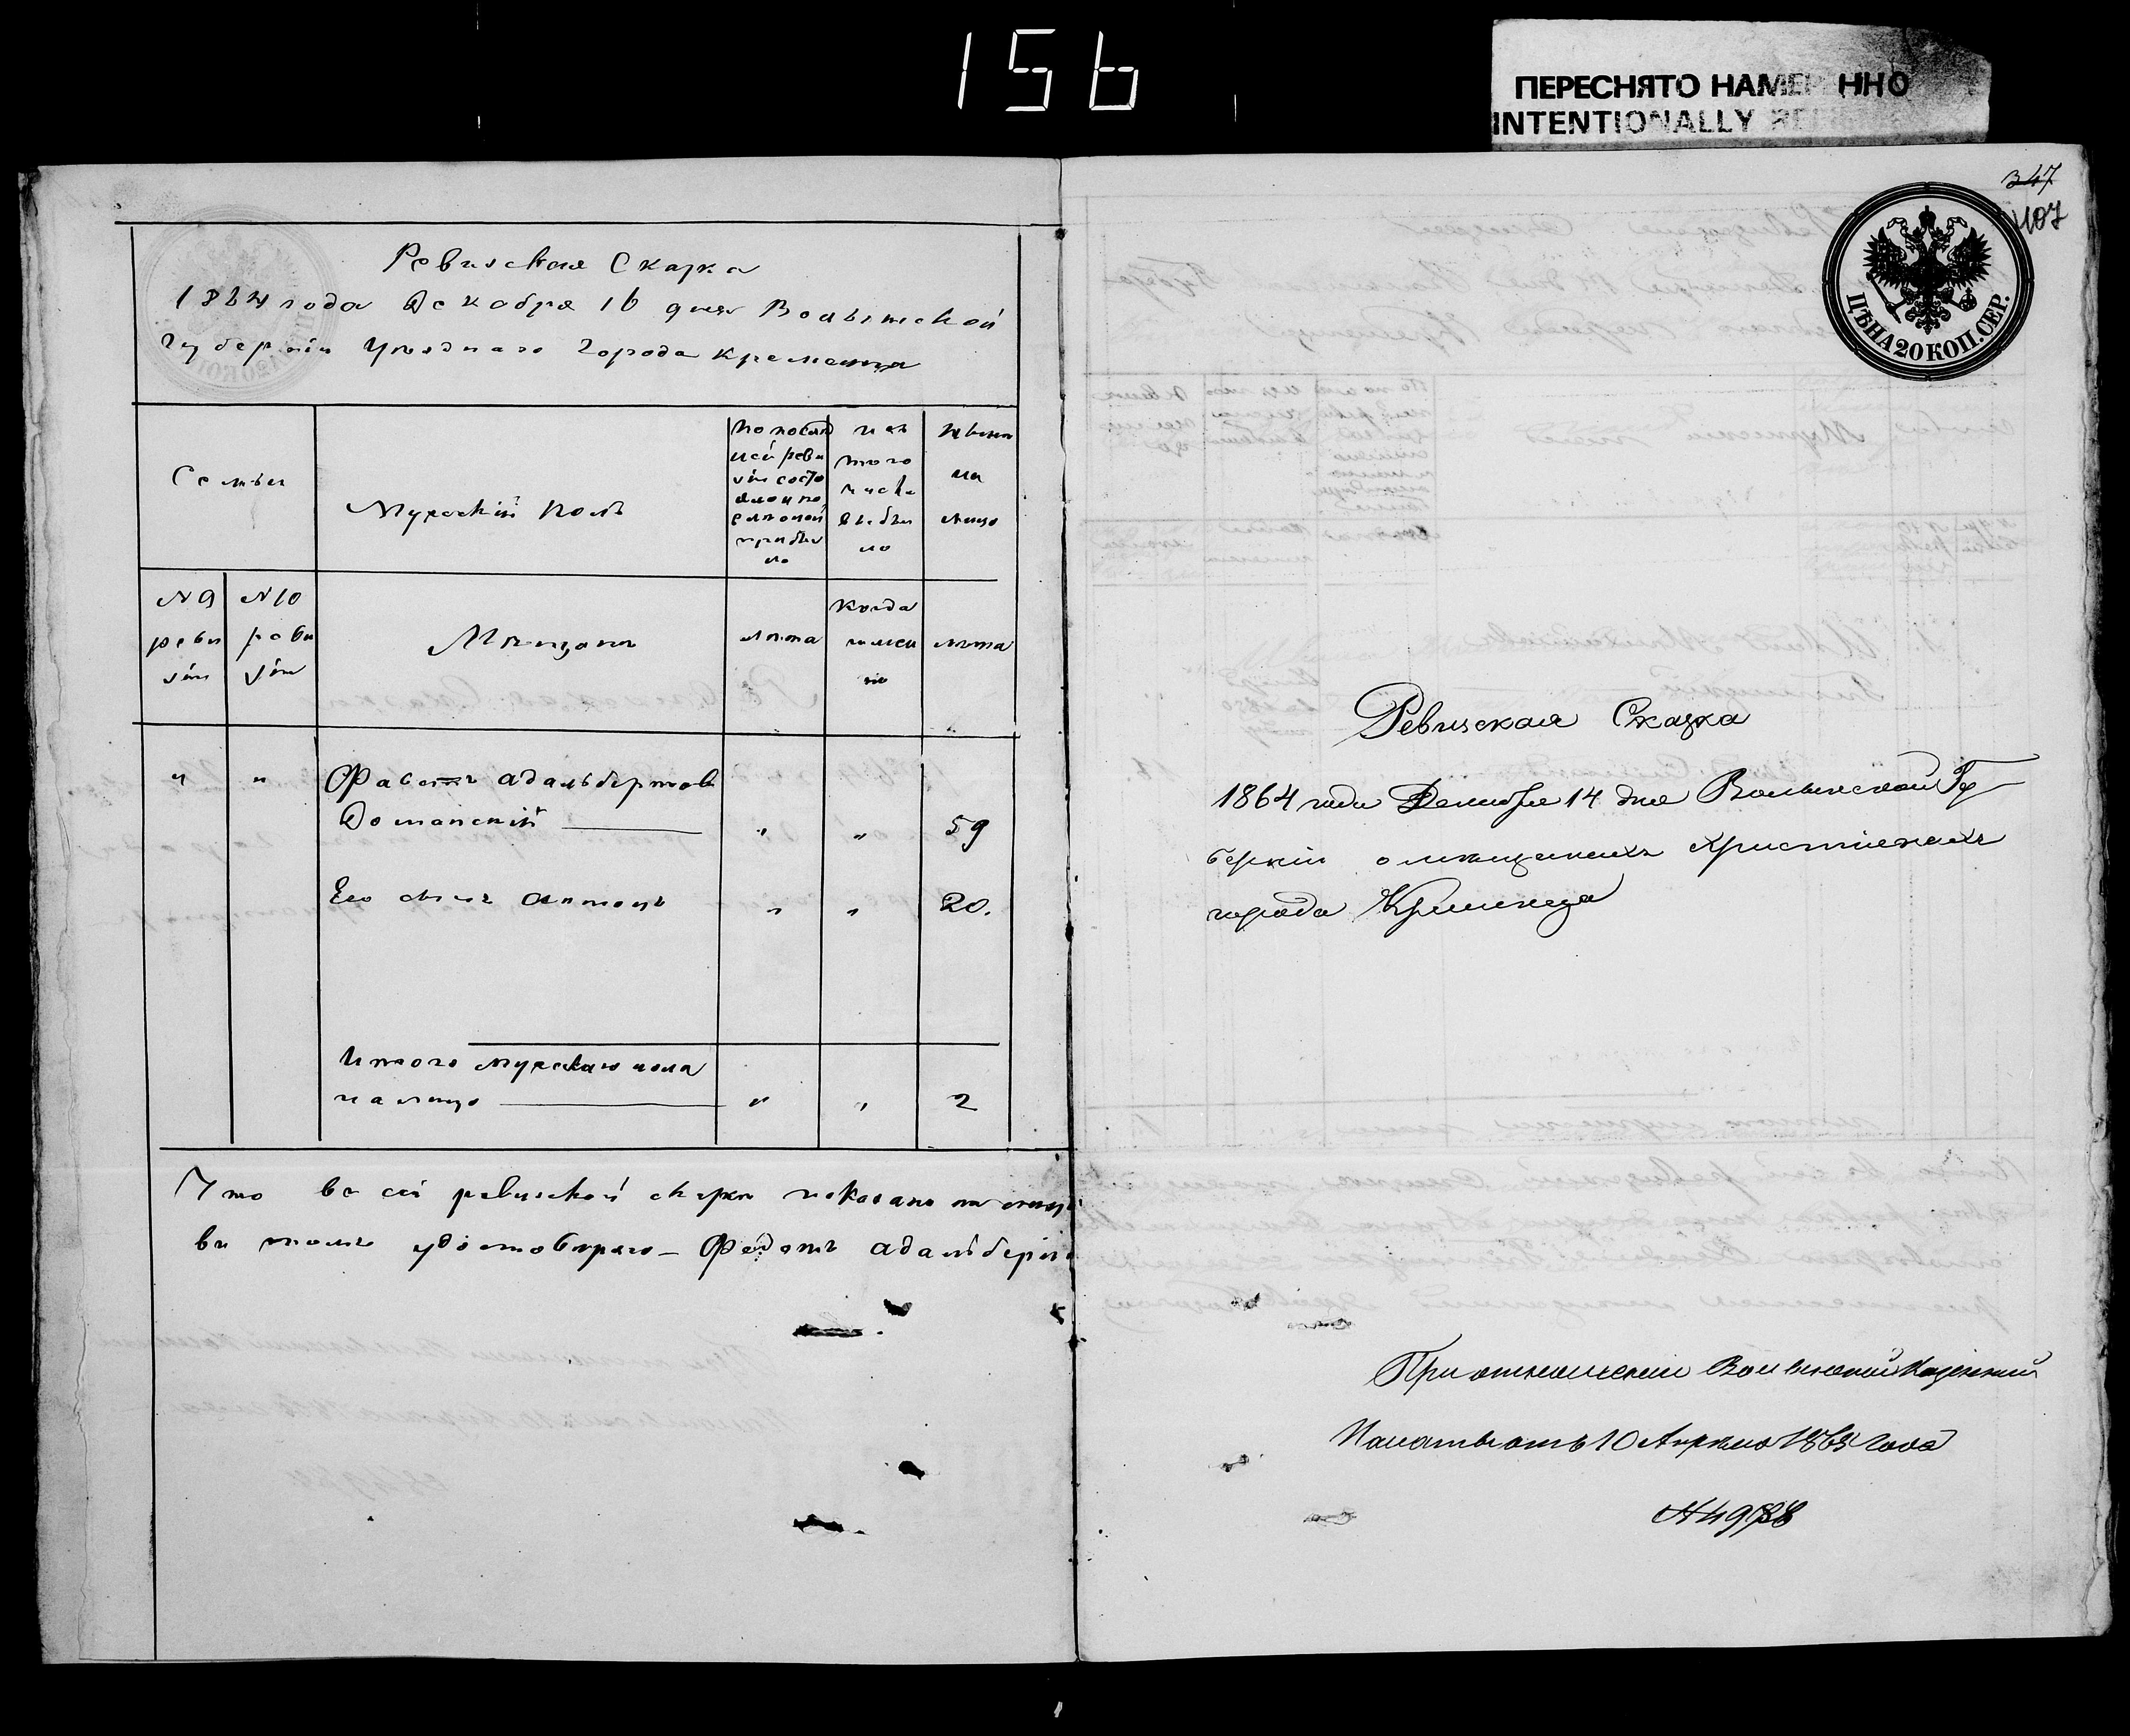 156
ПЕРЕСНЯТО НАМЕР ННО
INTENTIONALLY
Ревизская Сказка
1864 года Декабря 16 дня Волынской
Губерніи Уѣзднаго Города Кременца
Семьи
Мужескій полъ
По послѣд
ней реви
зіи состо
яло и по
оной
прибы
ло
изъ
того
числа
выбы
ло
Нынѣ
на
лицо
N 9
реви
зіи
N 10
реви
зіи
Мѣщанъ
лѣта
когда
имен
но
лѣта
" "
Адальбертов
Доманскій " " 59
Его сынъ Антонъ " " 20.
Итого мужескаго пола
на лицо " " 2
Что въ сей ревизской сказки показано
въ томъ удостоверяю - Федотъ Адальберт
347
107
ЦѢНА 20 КОП. СЕР.
Ревизская Сказка
1864 года Декабря 14 дня Волынской Гу
берніи о мѣщанахъ христіанахъ
города Кременца
При отношеніи Волынской Казенной
Палаты отъ 10 Апрѣля 1865 года